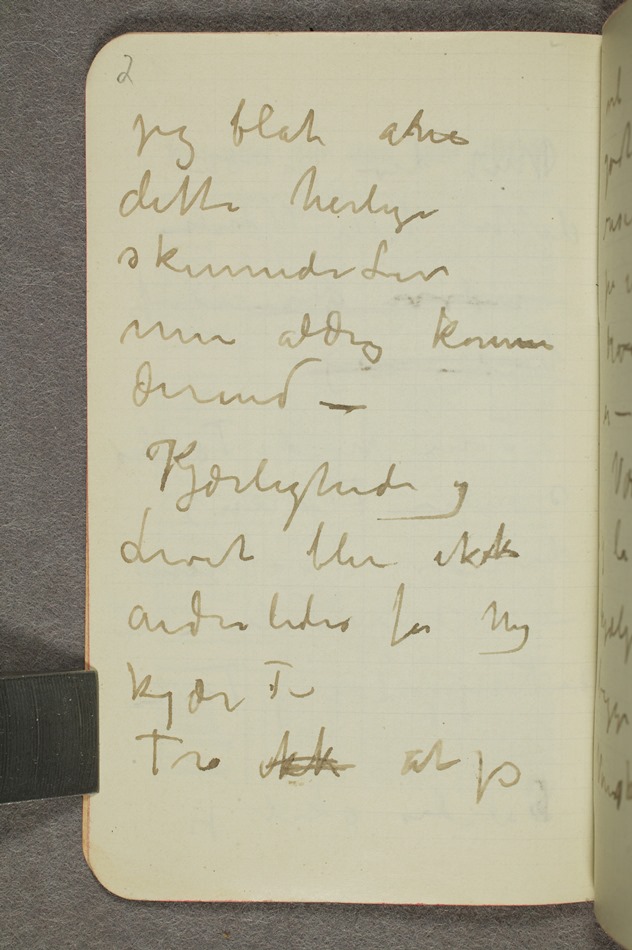 2
jeg blot ane
dette herlige
skinnende Liv
men aldrig komme
derind –
Kjærligheden og
Livet blir ikke
anderledes for mig
kjære T
Tro ikke at jeg